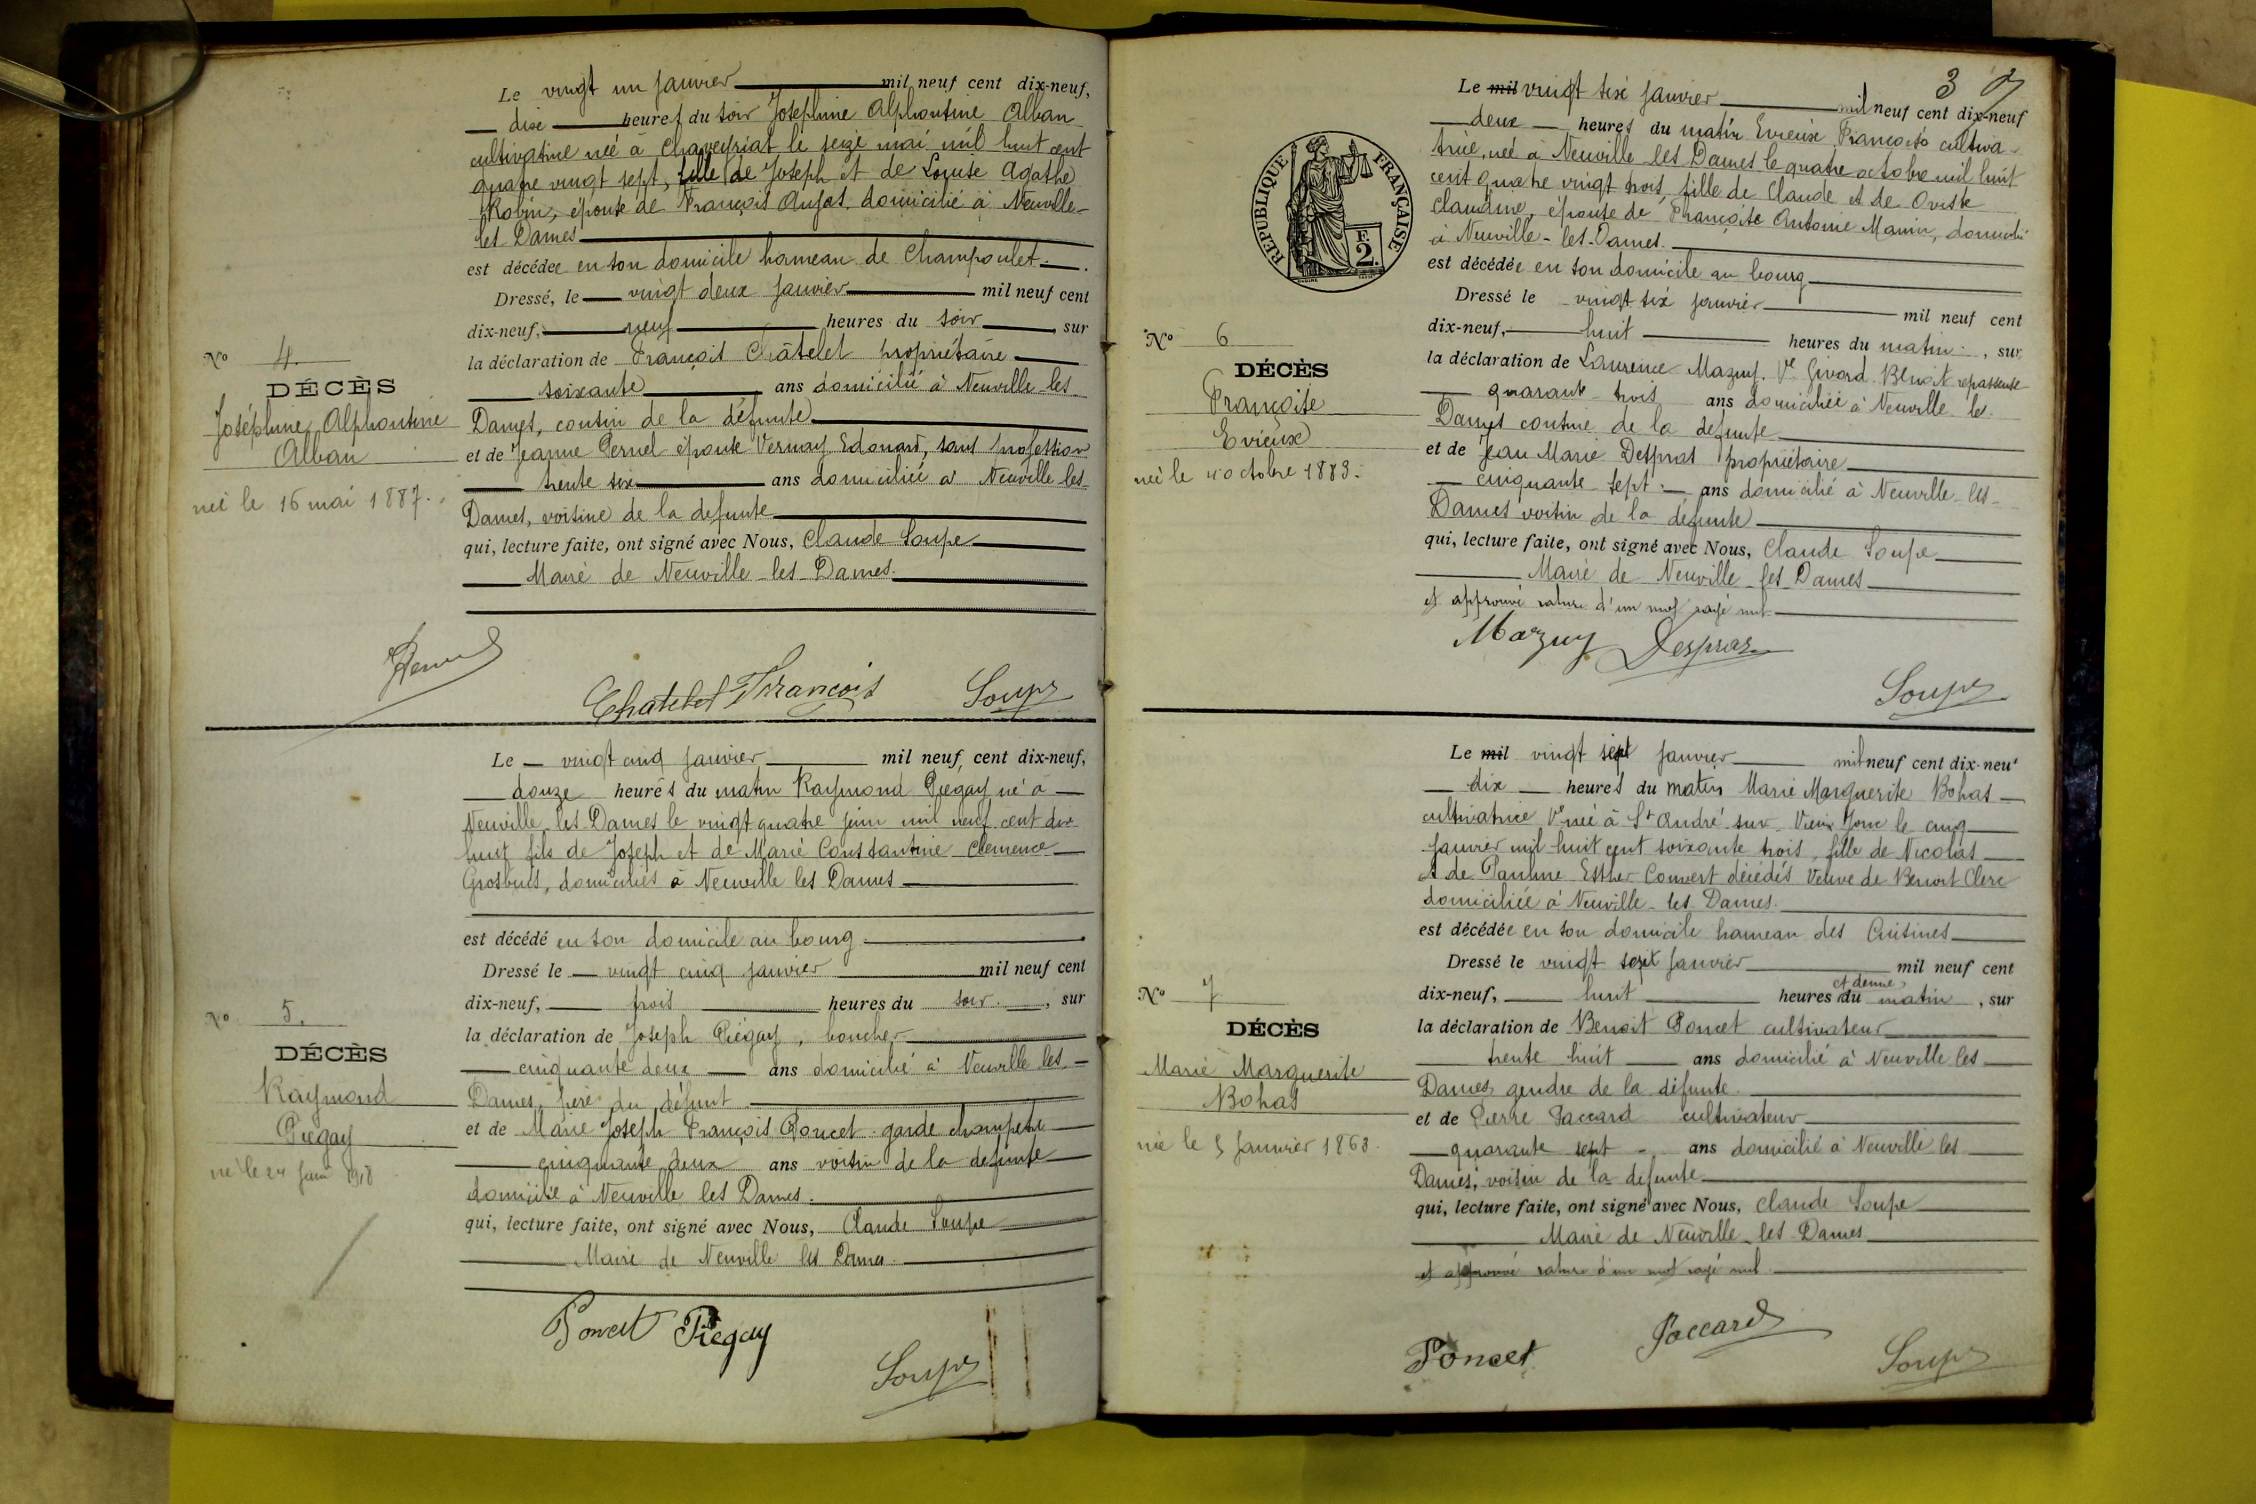 Le vingt un janvier mil neuf cent dix-neuf,
dix heures du soir Joséphine Alphonsine Alban
cultivatrice née à Chaveyriat le seize mai mil huit cent
quatre vingt sept, fille de Joseph et de Louise Agathe
Robin, épouse de François domicilié à Neuville-
les Dames
est décédée en son domicile hameau de Champoulet.
Dressé, le vingt deux janvier mil neuf cent
dix-neuf, neuf heures du soir, sur
la déclaration de François Châtelet propriétaire
soixante ans domicilié à Neuville les
Dames, cousin de la défunte
et de Jeanne Pernel épouse Vernay Edouard, sans profession
trente six ans domiciliée à Neuville les
Dames, voisine de la defunte
qui, lecture faite, ont signé avec Nous, Claude Soupe
Maire de Neuville-les-Dames.
No 4.
DÉCÈS
Joséphine Alphonsine
Alban
née le 16 mai 1887.
Chatelet François Soupe
Le vingt cinq janvier mil neuf cent dix-neuf,
douze heures du matin Raymond Piegay né à
Neuville les Dames le vingt quatre juin mil neuf cent dix
huit fils de Joseph et de Marie Constantine Clemence
domiciliés à Neuville les Dames
est décédé en son domicile au bourg
Dressé le vingt cinq janvier mil neuf cent
dix-neuf, trois heures du soir, sur
la déclaration de Joseph Piégay, boucher
cinquante deux ans domicilié à Neuville les
Dames, père du défunt
et de Marie Joseph François Poncet garde champetre
cinquante deux ans voisin de la defunte
domicilié à Neuville les Dames.
qui, lecture faite, ont signé avec Nous, Claude Soupe
Maire de Neuville les Dames
No 5.
DÉCÈS
Raymond
Piegay
né le 24 juin 1918
Poncet Piegay
Soupe
3
Le mil vingt six janvier mil neuf cent dix-neuf
deux heures du matin Evieux Françoise cultiva-
trice, née à Neuville les Dames le quatre octobre mil huit
cent quatre vingt trois fille de Claude et de
Claudine, épouse de Françoise Antoine Manin, domicilié
à Neuville-les-Dames.
est décédée en son domicile au bourg
Dressé le vingt six janvier mil neuf cent
dix-neuf, huit heures du matin, sur
la déclaration de Laurence Mazuy, Ve Givord Benoit repasseuse
quarante trois ans domiciliée à Neuville les
Dames cousine de la defunte
et de Jean Marie Despras propriétaire
cinquante sept ans domicilié à Neuville-les-
Dames voisin de la défunte
qui, lecture faite, ont signé avec Nous, Claude Soupe
Maire de Neuville-les-Dames
et approuvé rature d'un mot rayé nul.
RÉPUBLIQUE FRANÇAISE
F.
2.
No 6
DÉCÈS
Françoise
Evieux
née le 4 octobre 1883.
Mazuy Despras
Soupe
Le mil vingt sept janvier mil neuf cent dix-neuf
dix heures du matin Marie Marguerite Bohas
cultivatrice Ve née à St André sur Vieux Jonc le cinq
janvier mil huit cent soixante trois, fille de Nicolas
et de Pauline Esther Convert décédés Veuve de Benoit Clerc
domiciliée à Neuville-les-Dames.
est décédée en son domicile hameau des Cuisines
Dressé le vingt sept janvier mil neuf cent
et demie
dix-neuf, huit heures du matin, sur
la déclaration de Benoit Poncet cultivateur
trente huit ans domicilié à Neuville les
Dames gendre de la défunte.
et de Pierre Paccard cultivateur
quarante sept ans domicilié à Neuville les
Dames, voisin de la defunte
qui, lecture faite, ont signé avec Nous, Claude Soupe
Maire de Neuville-les-Dames
et approuvé rature d'un mot rayé nul.
No 7
DÉCÈS
Marie Marguerite
Bohas
née le 5 Janvier 1863.
Poncet Paccard Soupe